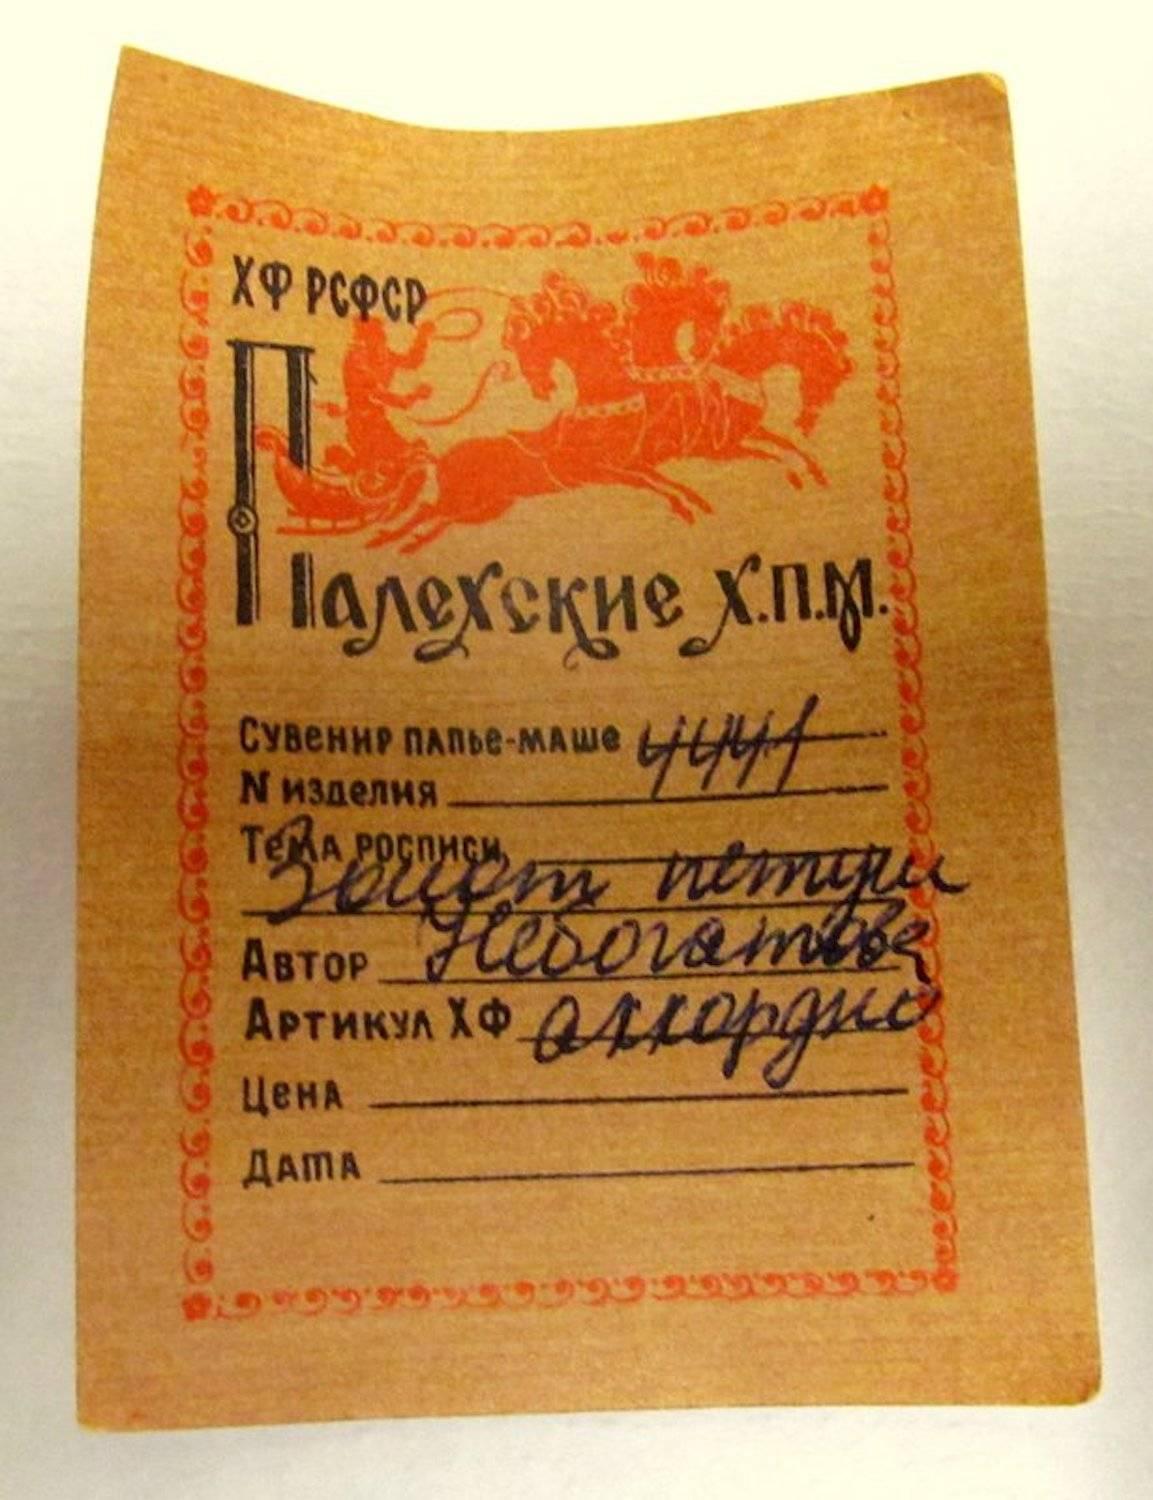 ХФ РСФСР
Палехские Х.П.М.
Сувенир папье-маше 4441
N изделия
Тема росписи
Золот петуш
Автор Небогатова
Артикул ХФ аккордно
Цена
Дата